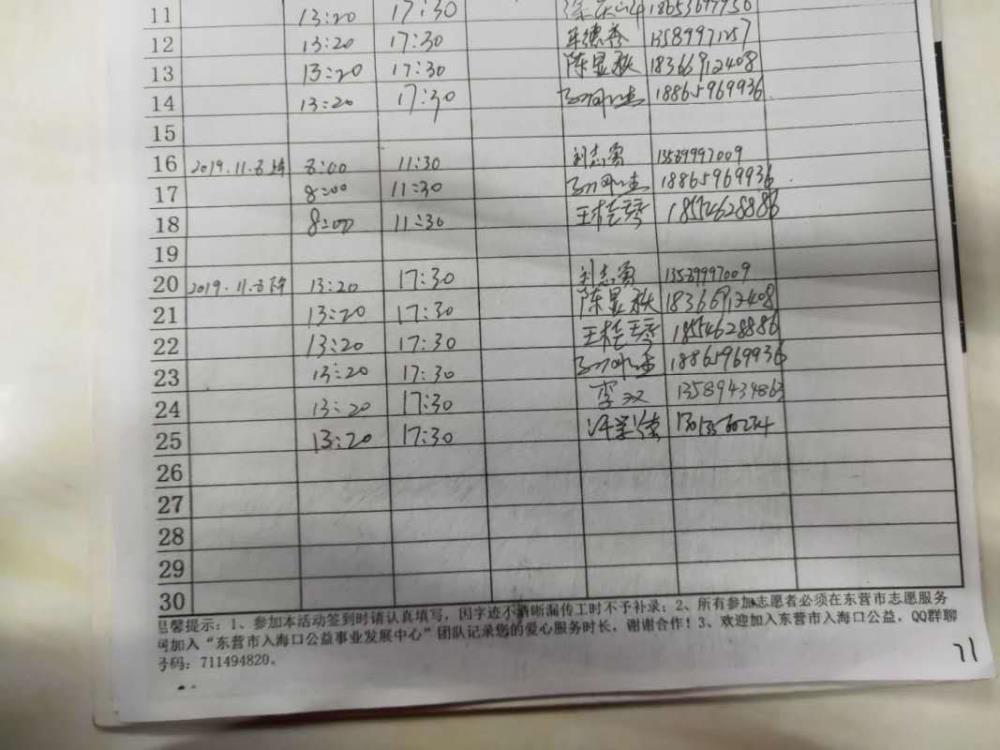 11 13:20 17:30
12 13:20 17:30 13589971257
13 13:20 17:30 陈显秋 18366912408
14 13:20 17:30 18865969936
15
16 2019.11.3上午 8:00 11:30 刘志勇 13589997009
17 8:00 11:30 18865969936
18 8:00 11:30 王桂琴 18554628886
19
20 2019.11.3下午 13:20 17:30 刘志勇 13589997009
21 13:20 17:30 陈显秋 18366912408
22 13:20 17:30 王桂琴 18554628886
23 13:20 17:30 18865969936
24 13:20 17:30 李双 13589434863
25 13:20 17:30
26
27
28
29
30
温馨提示:1、参加本活动签到时请认真填写,因字迹不清晰漏传工时不予补录;2、所有参加志愿者必须在东营市志愿服务
加入“东营市入海口公益事业发展中心”团队记录您的爱心服务时长,谢谢合作!3、欢迎加入东营市入海口公益,QQ群聊
号码:711494820。
71